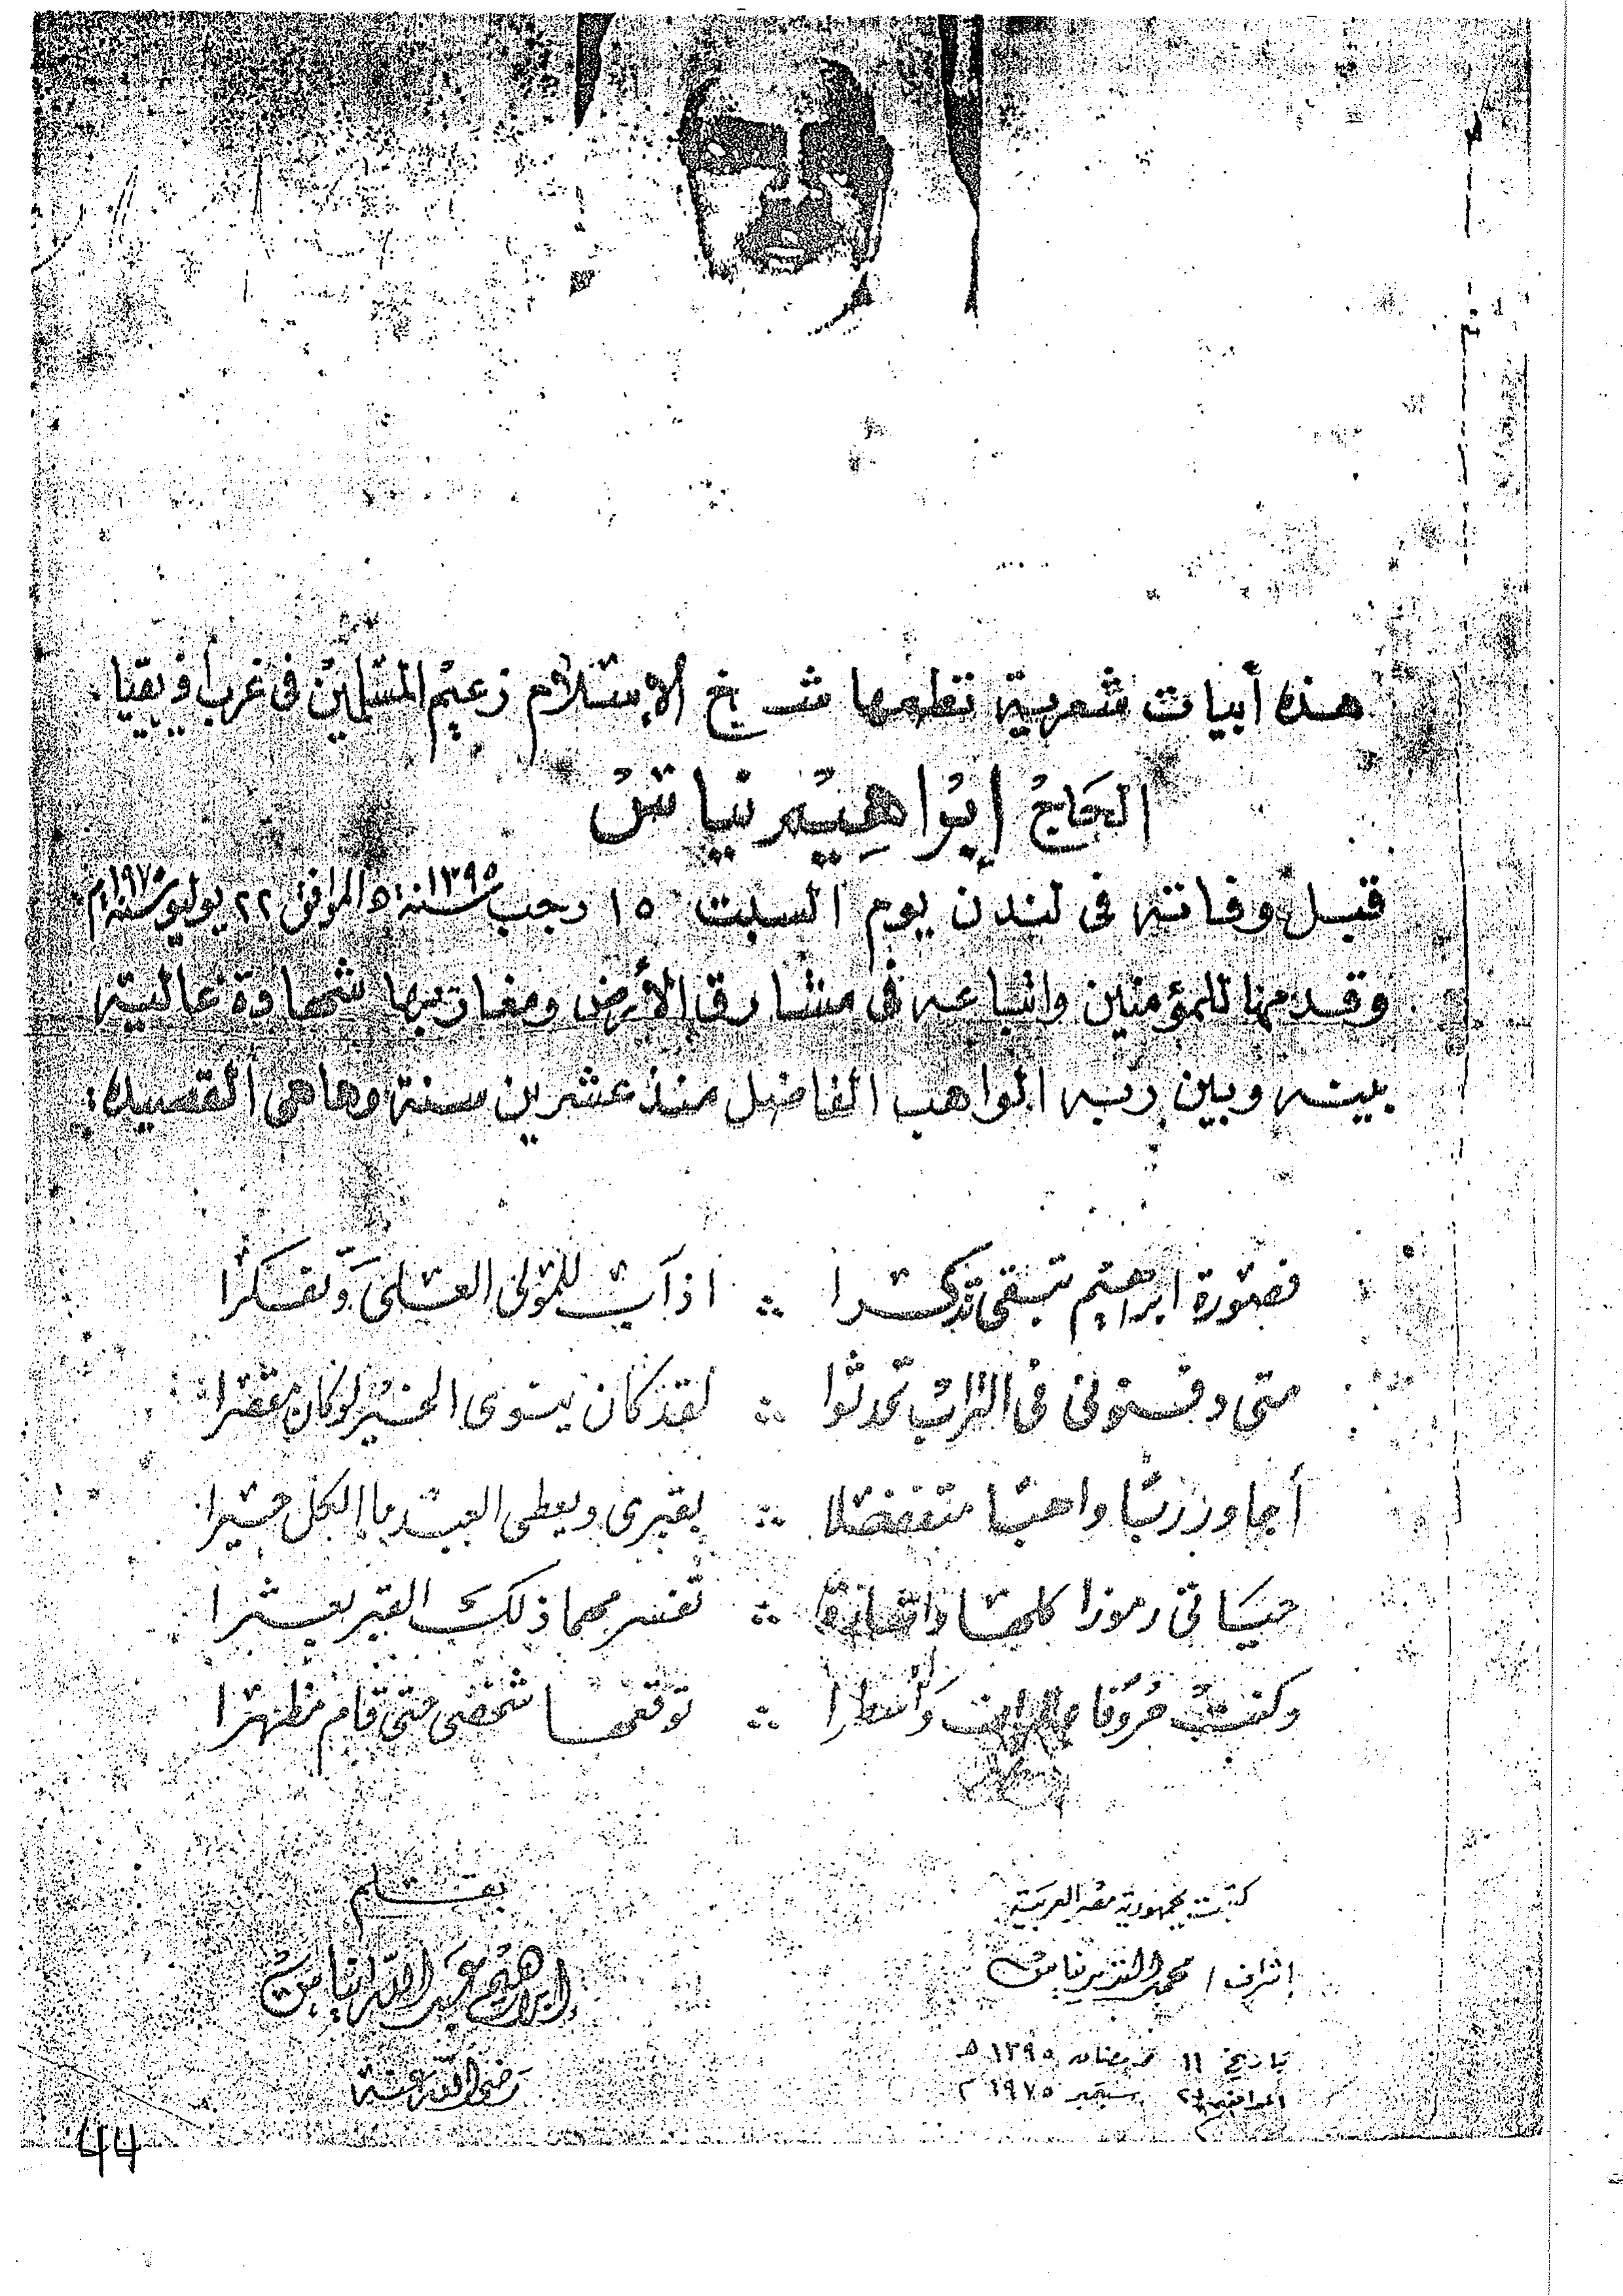 هذه أبيات شعرية نظمها شيخ الإسلام زعيم المسلمين فى غرب افريقيا
الحَاجُ إبْراهِيْم نياسْ
قبل وفاته فى لندن يوم السبت ١٥ رجب سنة ١٣٩٥ه الموافق ٢٢ يوليو سنة ١٩٧٥م
وقدمها للمؤمنين واتباعه فى مشارق الأرض ومغاربها شهادة عالية
بينه وبين ربه الواهب الفاضل منذ عشرين سنة وهاهى القصيده:
فصورة ابراهيم تبقى تذكرا ∴ اذآب للمولى العلى وَّتفكرا
متى دفنونى فى التراب تحدثوا ∴ لقد كان ينوى الخير لوكان مقصرا
أجاور ربًا واهبًا متفضلا ∴ بقبرى ويعطى العبد ما الكل حيرا
حيَاتى رموزا كلها واشارة ∴ تفسر مهما ذلك القبر بعثرا
وكنت حُروفًا وَأسطرا ∴ توقعها شخصى متى قام مظهرا
كتبت بجمهورية مصر العربية
إشراف / محمد النذير نياس
بتاريخ ١١ رمضان ١٣٩٥ ه
الموافق سبتمبر ١٩٧٥ م
بقلم
ابراهيم عبد الله انياس
رضى الله عنه
44